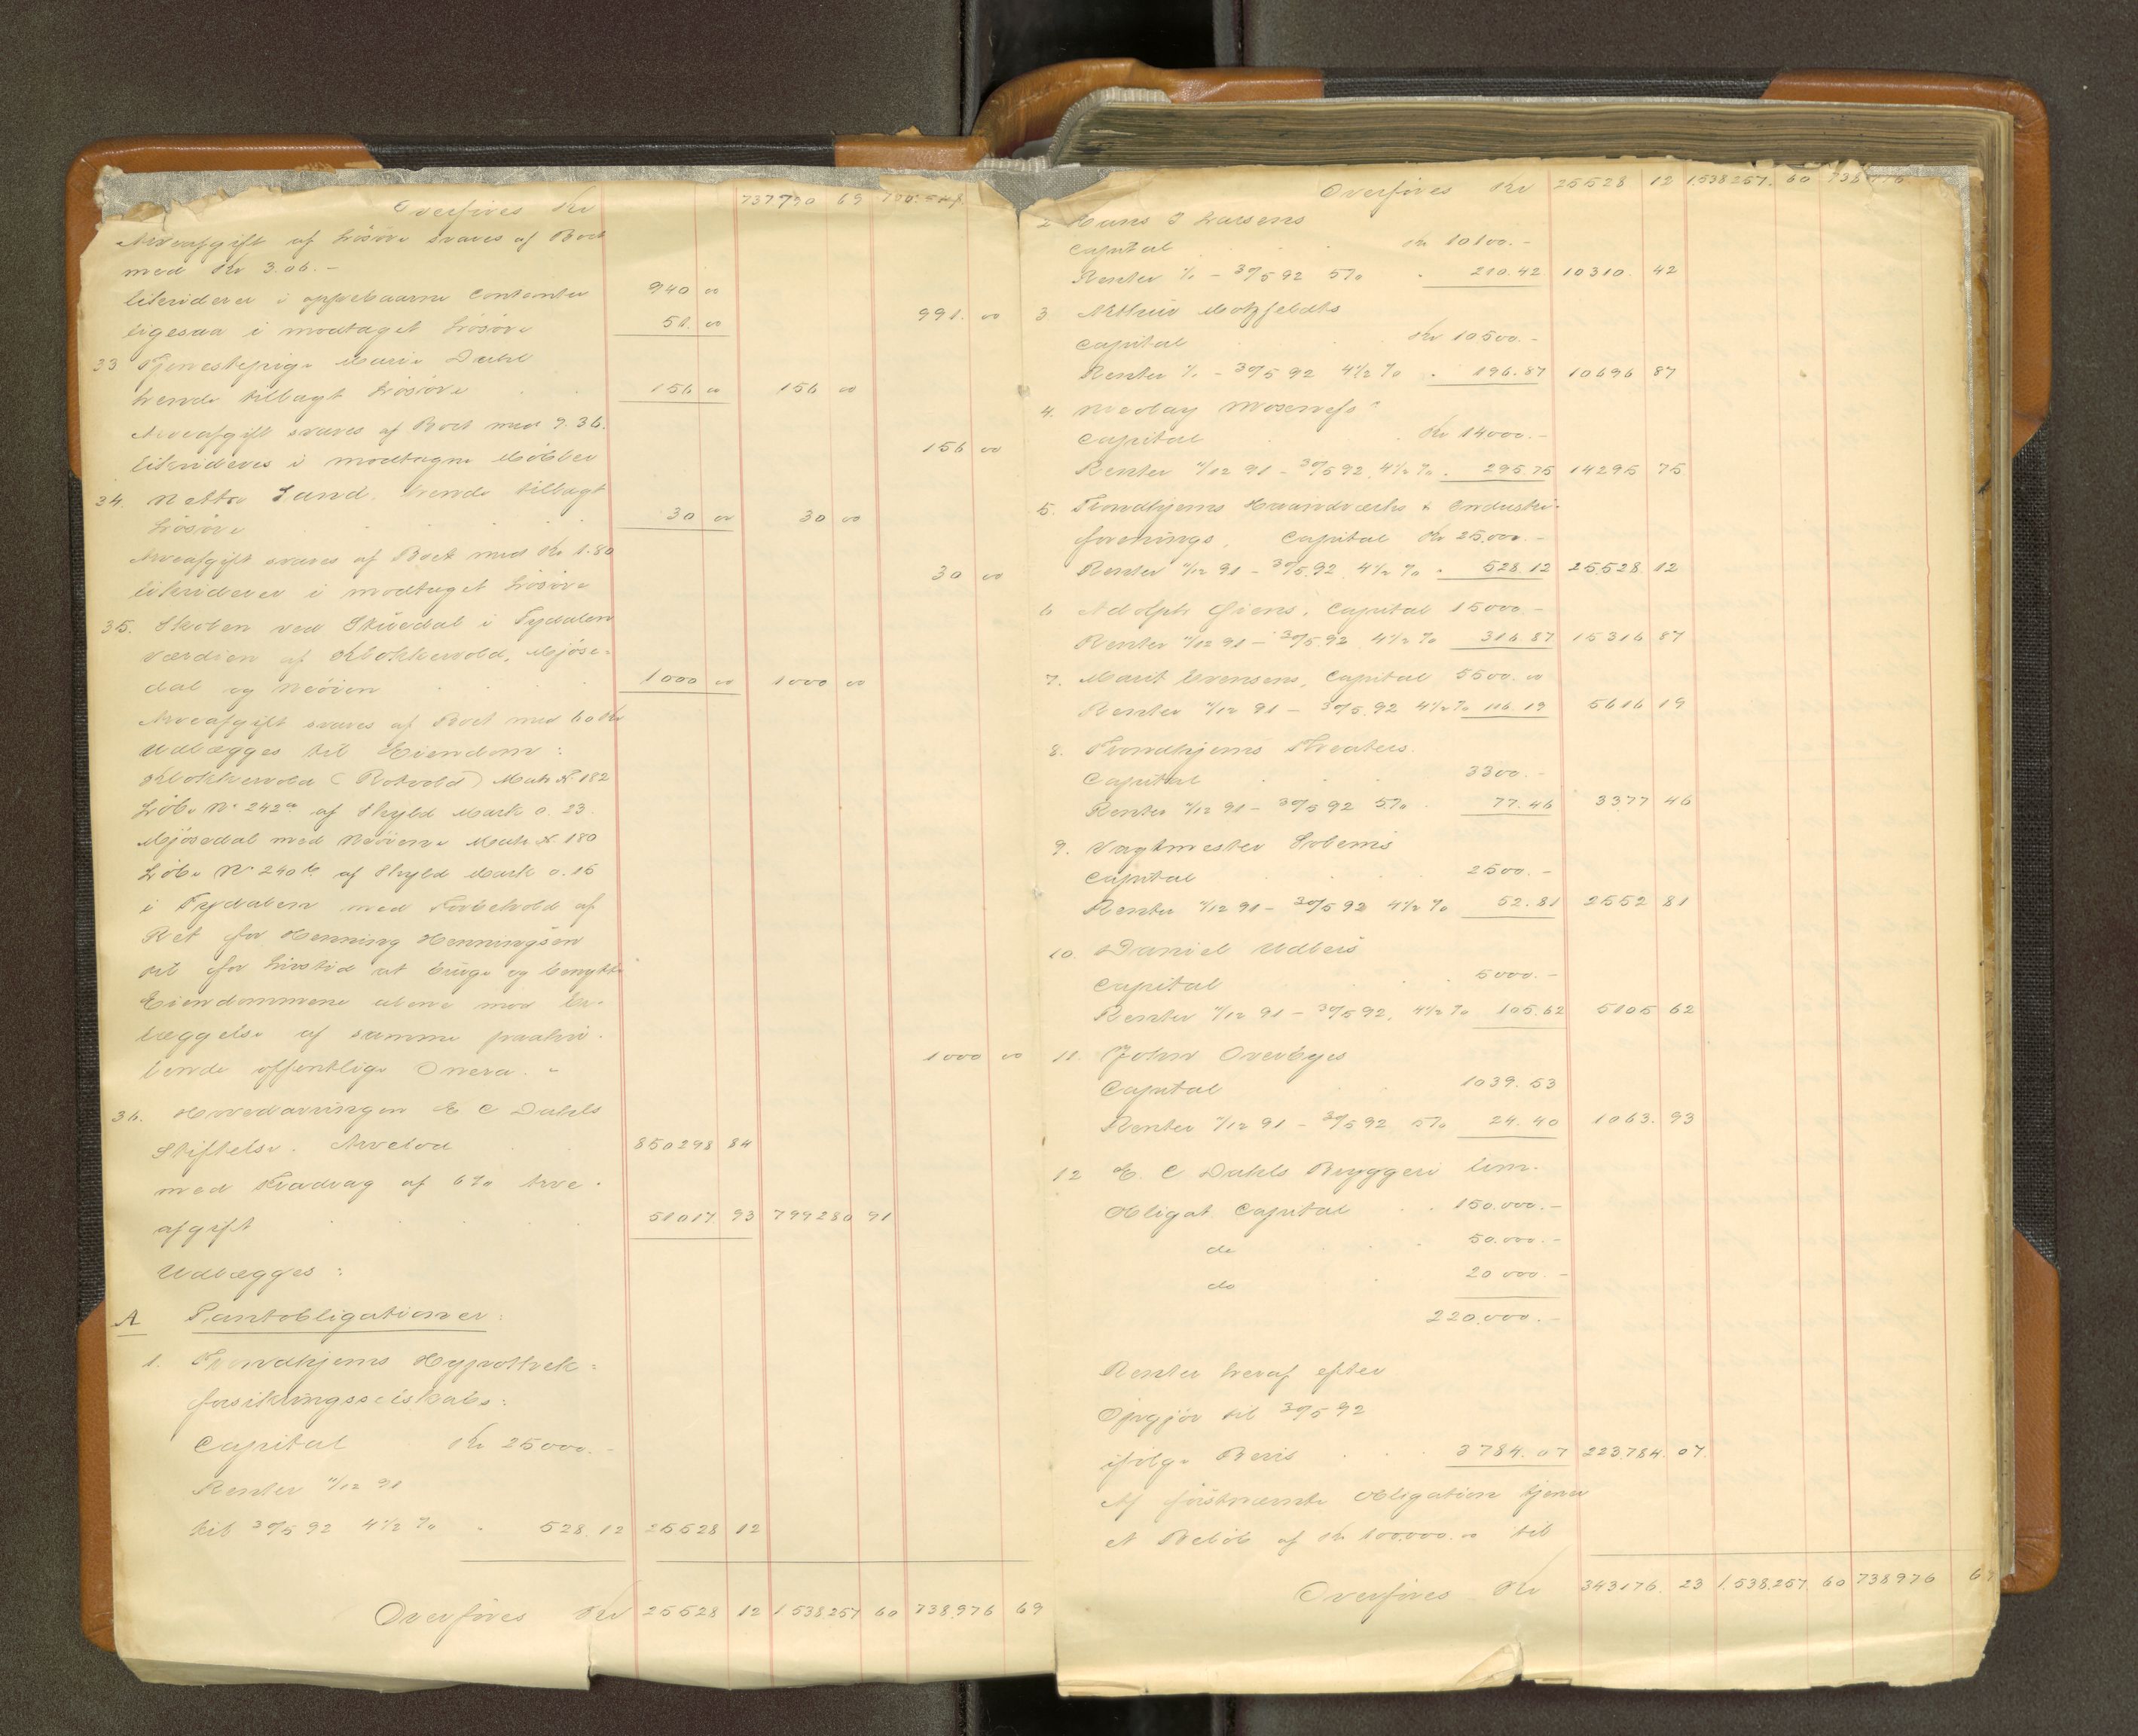 Overføres Kr 737790 69
Arveafgift af Løsøre svares af Boet
med Kr 3.06.-
likviderer i oppebaarne Contanter 940 00
ligesaa i modtaget Løsøre 51. 00 991. 00
33 Tjenestepige Marie Dahl
hende tillagt Løsøre 156 00 156 00
Arveafgift svares af Boet med 9.36.
likvideres i modtagne Møbler 156 00
34. Netta Sand. hende tillagt
Løsøre 30 00 30 00
Arveafgift svares af Boet med Kr 1.80
likviderer i modtaget Løsøre 30 00
35. Skolen ved Stuedal i Tydalen
værdien af Klokkervold, Mjøse-
dal og Nøien 1000 00 1000 00
Arveafgift svares af Boet med 60 Kr
Udlægges til Eiendom:
Klokkervold (Rotvold) Matr № 182
Løbe No 242a af Skyld Mark 0.23.
Mjøsedal med Nøiene Matr № 180
Løbe No 240b af Skyld Mark 0.15
i Tydalen med Forbehold af
Ret for Henning Henningsen
til for Livstid at bruge og benytte
Eiendommene alene mod Er-
læggelse af samme paahvi-
lende offentlige Onera. - 1000 00
36. Hovedarvingen E C Dahls
Stiftelse. Arvelod 850298 84
med Fradrag af 6% Arve-
afgift 51017. 93 799280 91
Udlægges:
A Pantobligationer:
1. Trondhjems Hypothek-
forsikringsselskabs:
Capital Kr 25000.-
Renter 11/12 91
til 30/5 92 4½% " 528.12 25528 12
Overføres Kr 25528 12 1538257 60 738.976 69
Overføres Kr 25528 12 1.538257. 60
2 Hans J Larsens
Capital Kr 10100.-
Renter - 30/5 92 5% " 210.42 10310. 42
3 Arthur Motzfeldts
Capital Kr 10500.-
Renter - 30/5 92 4½% " 196.87 10696 87
4. Nicolay
Capital Kr 14000.-
Renter 11/12 91 - 30/5 92 4½% " 295 75 14295 75
5. Trondhjems Haandværks & Industri-
forenings, Capital Kr 25.000.-
Renter 11/12 91 - 30/5 92 4½% " 528.12 25528. 12
6 Adolph Øiens, Capital 15000.-
Renter 11/12 91 - 30/5 92 4½% 316.87 15316 87
7. Marit Evensens, Capital 5500.00
Renter 11/12 91 - 30/5 92 4½% 116.19 5616 19
8. Trondhjems Theaters.
Capital 3300.-
Renter 11/12 91 - 30/5 92 5% 77.46 3377 46
9. Vagtmester Solems
Capital 2500.-
Renter 11/12 91 - 30/5 92 4½% 52.81 2552 81
10. Daniel Udbeis
Capital 5000.-
Renter 11/12 91 - 30/5 92, 4½% 105.62 5105 62
11. John Overbyes
Capital 1039.53
Renter 11/12 91 - 30/5 92 5% 24.40 1063. 93
12 E. C Dahls Bryggeri
Obligat. Capital 150.000.-
do 50.000.-
do 20 000.-
220.000.-
Renter heraf efter
Opgjør til 30/5 92
ifølge Bevis 3784.07 223.784. 07.
Af førstnævnte Obligation tjener
et Beløb af Kr 100000.00 til
Overføres Kr 343176. 23 1.538.257. 60 738976 69